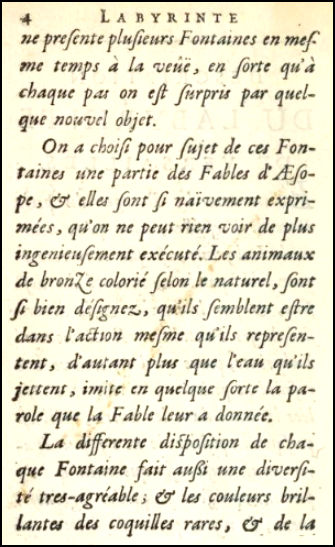 4 LABYRINTE
ne preſente pluſieurs Fontaines en meſ-
me temps à la veüë, en ſorte qu'à
chaque pas on eſt ſurpris par quel-
que nouvel objet.
On a choiſi pour ſujet de ces Fon-
taines une partie des Fables d'Æſo-
pe, & elles ſont ſi naïvement expri-
mées, qu'on ne peut rien voir de plus
ingenieuſement exécuté. Les animaux
de bronze colorié ſelon le naturel, ſont
ſi bien déſignez, qu'ils ſemblent eſtre
dans l'action meſme qu'ils repreſen-
tent, d'autant plus que l'eau qu'ils
jettent, imite en quelque ſorte la pa-
role que la Fable leur a donnée.
La differente diſpoſition de cha-
que Fontaine fait auſſi une diverſi-
té tres-agréable; & les couleurs bril-
lantes des coquilles rares, & de la